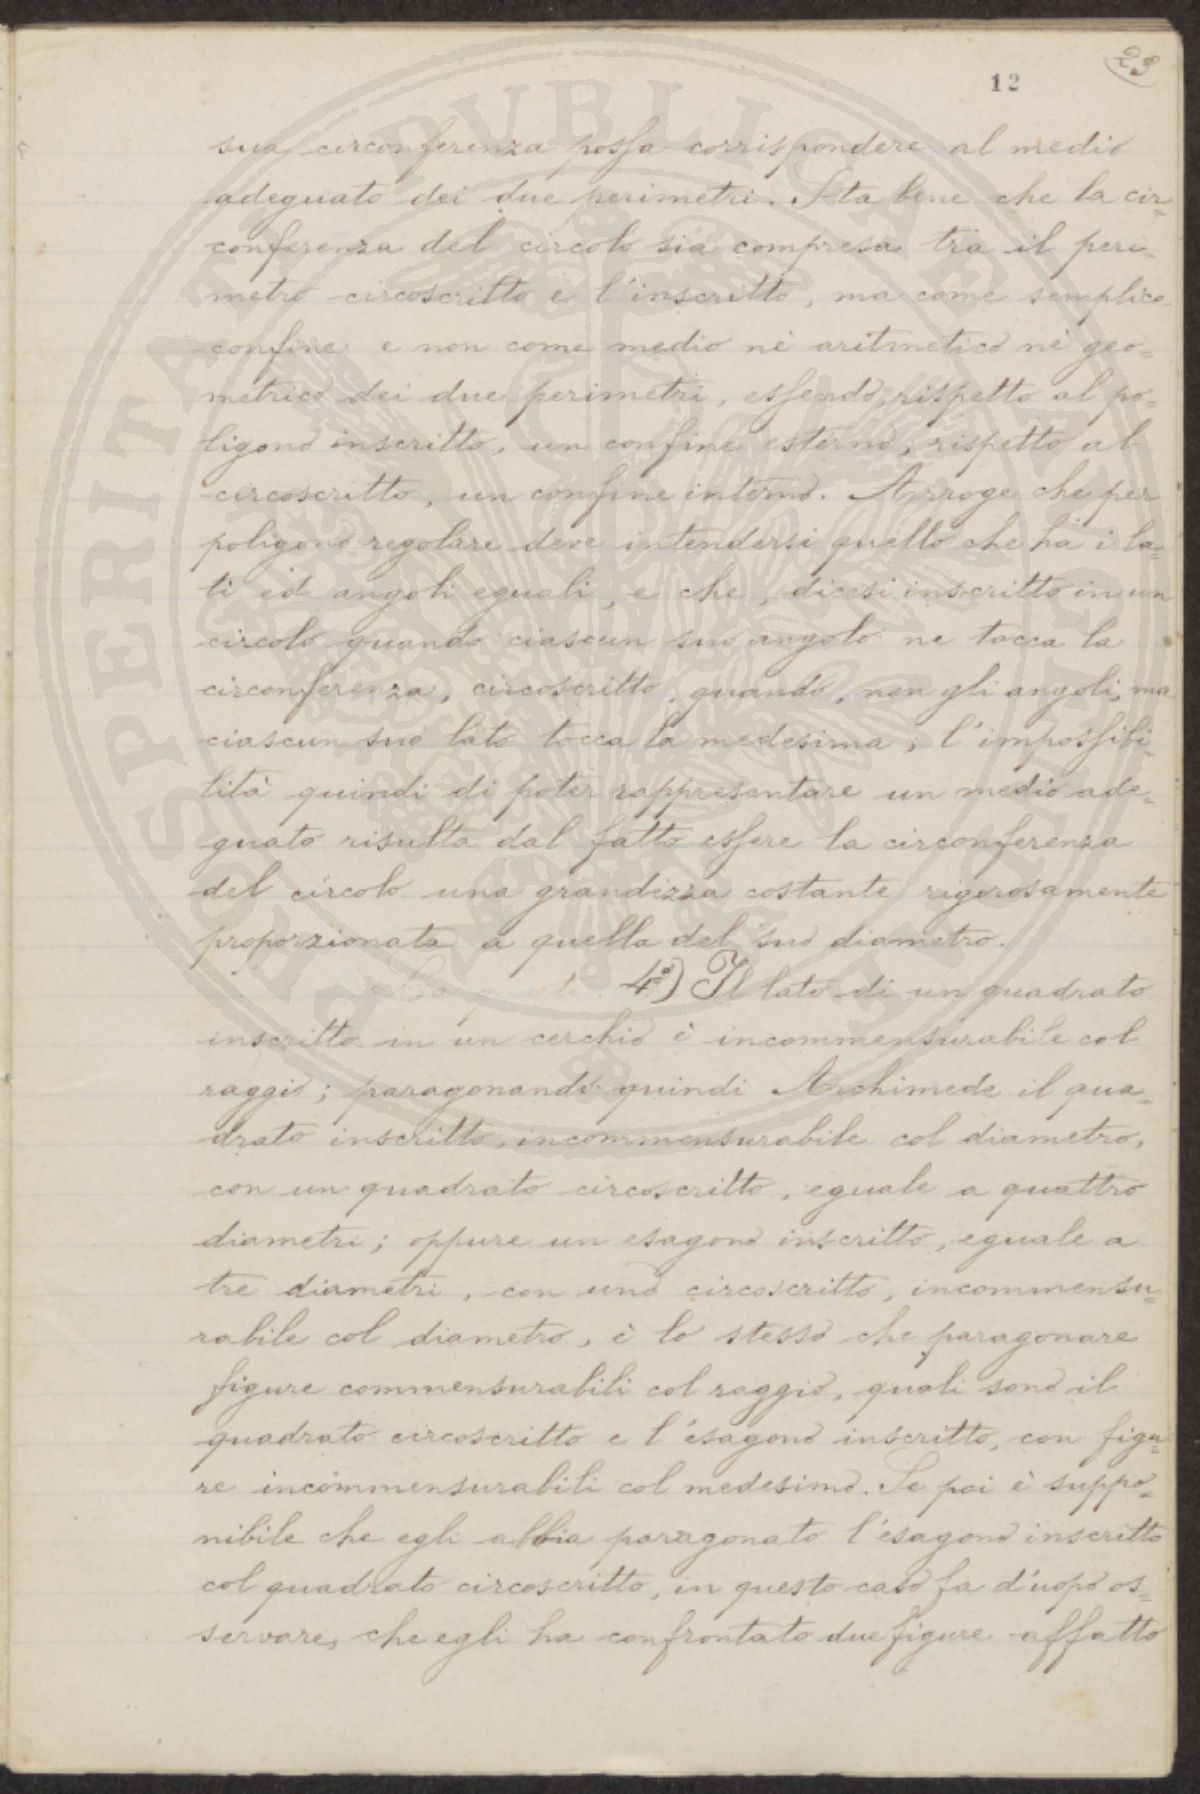 23
12
sua circonferenza possa corrispondere al medio
adeguato dei due perimetri. Sta bene che la cir=
conferenza del circolo sia compresa tra il peri=
metro circoscritto e l'inscritto, ma come semplice
confine e non come medio nè aritmetico nè geo=
metrico dei due perimetri, essendo, rispetto al po=
ligono inscritto, un confine esterno, rispetto al
circoscritto, un confine interno. Arroge che per
poligono regolare deve intendersi quello che ha i la=
ti ed angoli eguali, e che, dicesi inscritto in un
circolo quando ciascun suo angolo ne tocca la
circonferenza, circoscritto, quando, non gli angoli, ma
ciascun suo lato tocca la medesima; l'impossibi=
lità quindi di poter rappresentare un medio ade=
guato risulta dal fatto essere la circonferenza
del circolo una grandezza costante rigorosamente
proporzionata a quella del suo diametro.
4º) Il lato di un quadrato
inscritto in un cerchio è incommensurabile col
raggio; paragonando quindi Archimede il qua=
drato inscritto, incommensurabile col diametro,
con un quadrato circoscritto, eguale a quattro
diametri; oppure un esagono inscritto, eguale a
tre diametri, con uno circoscritto, incommensu=
rabile col diametro, è lo stesso che paragonare
figure commensurabili col raggio, quali sono il
quadrato circoscritto e l'esagono inscritto, con figu=
re incommensurabili col medesimo. Se poi è suppo=
nibile che egli abbia paragonato l'esagono inscritto
col quadrato circoscritto, in questo caso fa d'uopo os=
servare, che egli ha confrontato due figure affatto
PROSPERITATI PVBLICAE